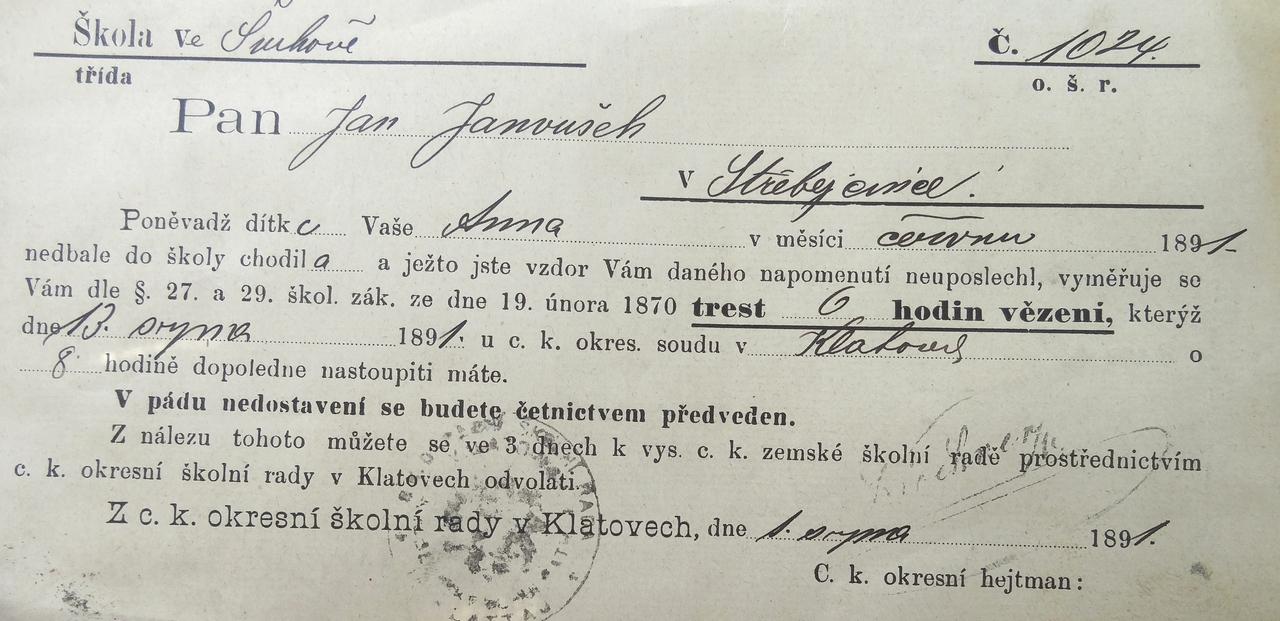 Škola ve Švihově
Č. 1024.
třída
o. š. r.
Pan Jan Janoušek
v
Poněvadž dítko Vaše Anna v měsíci červnu 1891
nedbale do školy chodila a ježto jste vzdor Vám daného napomenutí neuposlechl, vyměřuje se
Vám dle §. 27. a 29. škol. zák. ze dne 19. února 1870 trest 6 hodin vězení, kterýž
dne 13. srpna 1891. u c. k. okres. soudu v Klatovech o
8 hodině dopoledne nastoupiti máte.
V pádu nedostavení se budete četnictvem předveden.
Z nálezu tohoto můžete se ve 3 dnech k vys. c. k. zemské školní radě prostřednictvím
c. k. okresní školní rady v Klatovech odvolati.
Z c. k. okresní školní rady v Klatovech, dne 1. srpna 1891.
C. k. okresní hejtman: